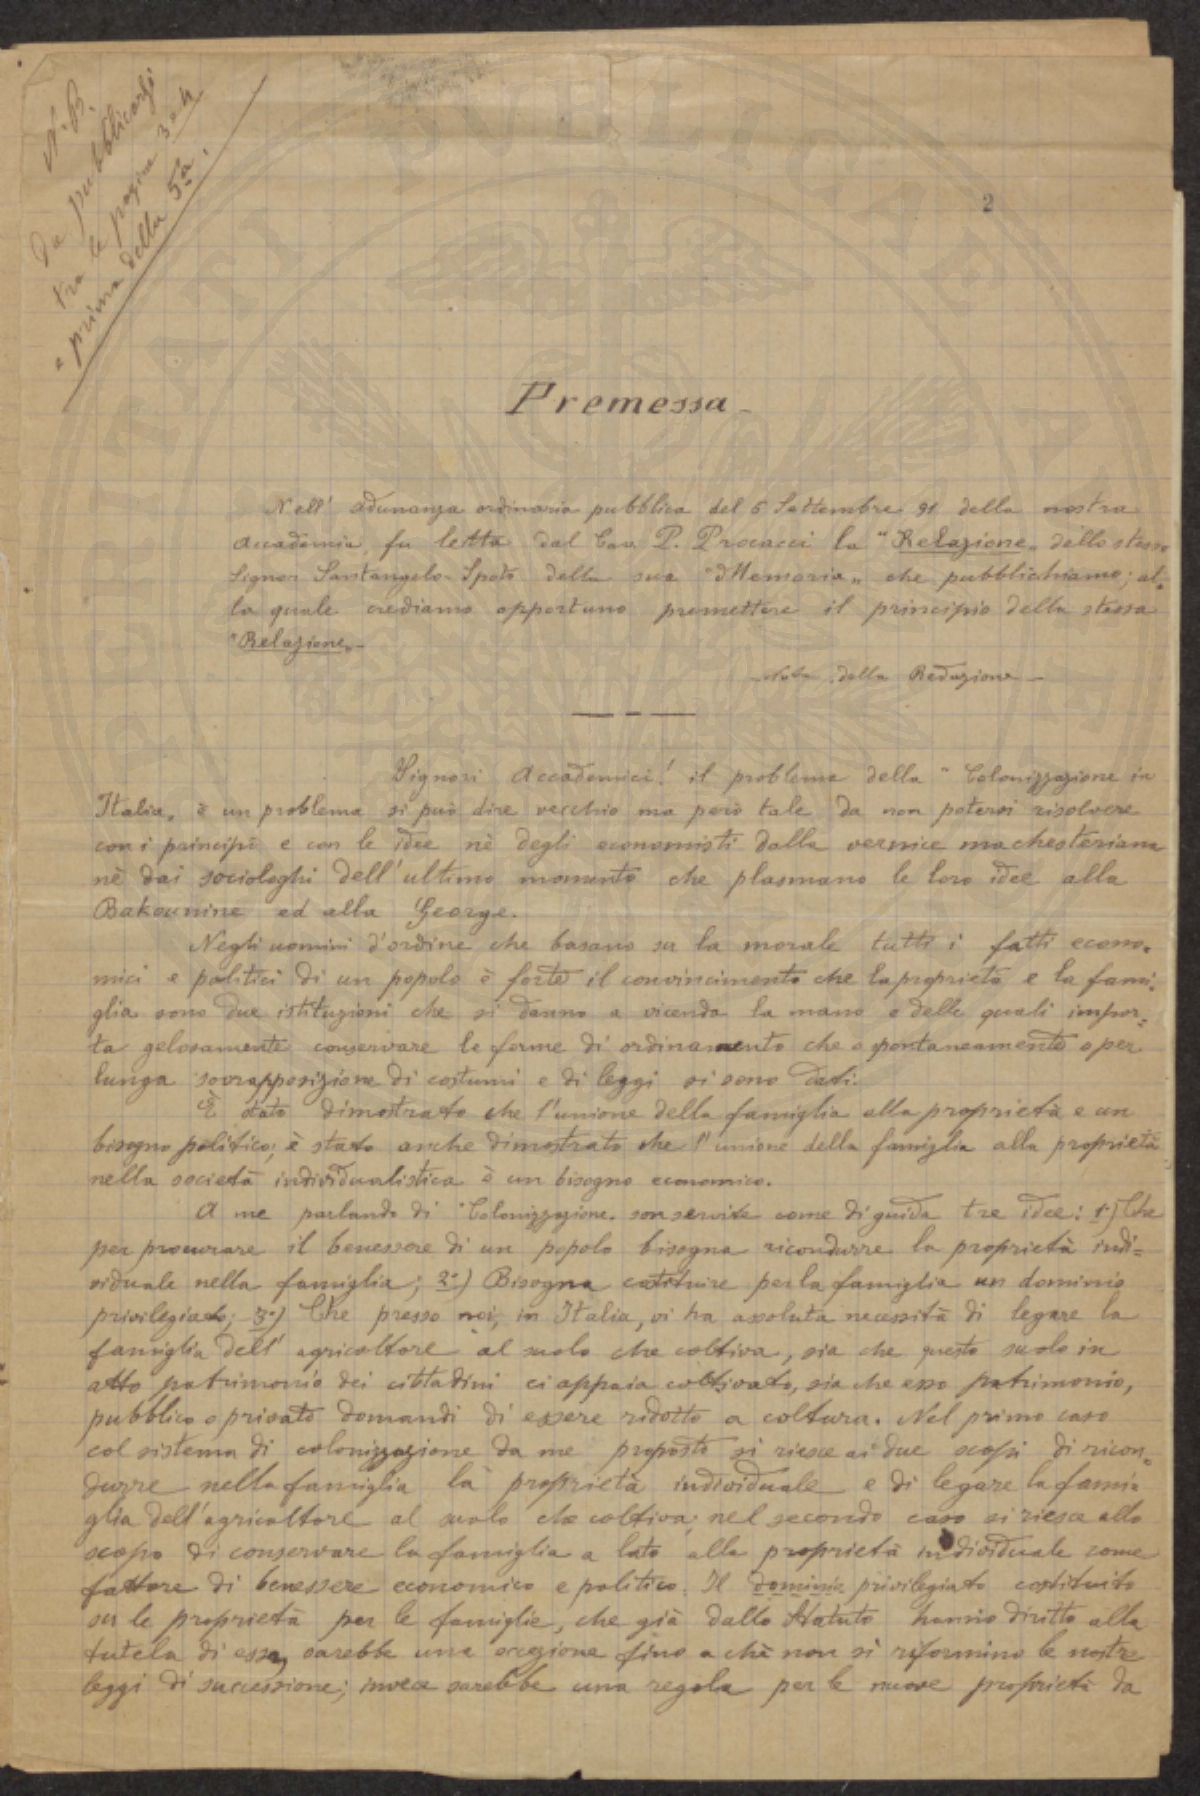 N.B.
Da pubblicarsi
tra le pagine 3 e 4
e prima della 5a.
2
Premessa
Nell' adunanza ordinaria pubblica del 6 Settembre 91 della nostra
Accademia, fu letta dal Cav. P. Procacci la "Relazione" dello stesso
Signor Santangelo-Spoto della sua "Memoria" che pubblichiamo; al=
la quale crediamo opportuno premettere il principio della stessa
"Relazione"-
- Nota della Redazione -
Signori Accademici! il problema della "Colonizzazione in
Italia" è un problema si può dire vecchio ma però tale da non potersi risolvere
con i principi e con le idee nè degli economisti dalla vernice machesteriana
nè dai sociologhi dell'ultimo momento che plasmano le loro idee alla
Bakounine ed alla George.
Negli uomini d'ordine che basano su la morale tutti i fatti econo=
mici e politici di un popolo è forte il convincimento che la proprietà e la fami=
glia sono due istituzioni che si danno a vicenda la mano e delle quali impor=
ta gelosamente conservare le forme di ordinamento che o spontaneamente o per
lunga sovrapposizione di costumi e di leggi si sono dati.
È stato dimostrato che l'unione della famiglia alla proprietà e un
bisogno politico; è stato anche dimostrato che l'unione della famiglia alla proprietà
nella società individualistica è un bisogno economico.
A me parlando di "Colonizzazione" son servite come di guida tre idee: 1°) Che
per procurare il benessere di un popolo bisogna ricondurre la proprietà indi=
viduale nella famiglia; 2°) Bisogna costituire per la famiglia un dominio
privilegiato; 3°) Che presso noi, in Italia, vi ha assoluta necessità di legare la
famiglia dell'agricoltore al suolo che coltiva, sia che questo suolo in
atto patrimonio dei cittadini ci appaia coltivato, sia che esso patrimonio,
pubblico o privato domandi di essere ridotto a coltura. Nel primo caso
col sistema di colonizzazione da me proposto si riesce ai due scopi di ricon=
durre nella famiglia la proprietà individuale e di legare la fami=
glia dell'agricoltore al suolo che coltiva; nel secondo caso si riesce allo
scopo di conservare la famiglia a lato alla proprietà individuale come
fattore di benessere economico e politico. Il dominio privilegiato costituito
su le proprietà per le famiglie, che già dallo Statuto hanno diritto alla
tutela di essa, sarebbe una eccezione fino a chè non si riformino le nostre
leggi di successione; invece sarebbe una regola per le nuove proprietà da